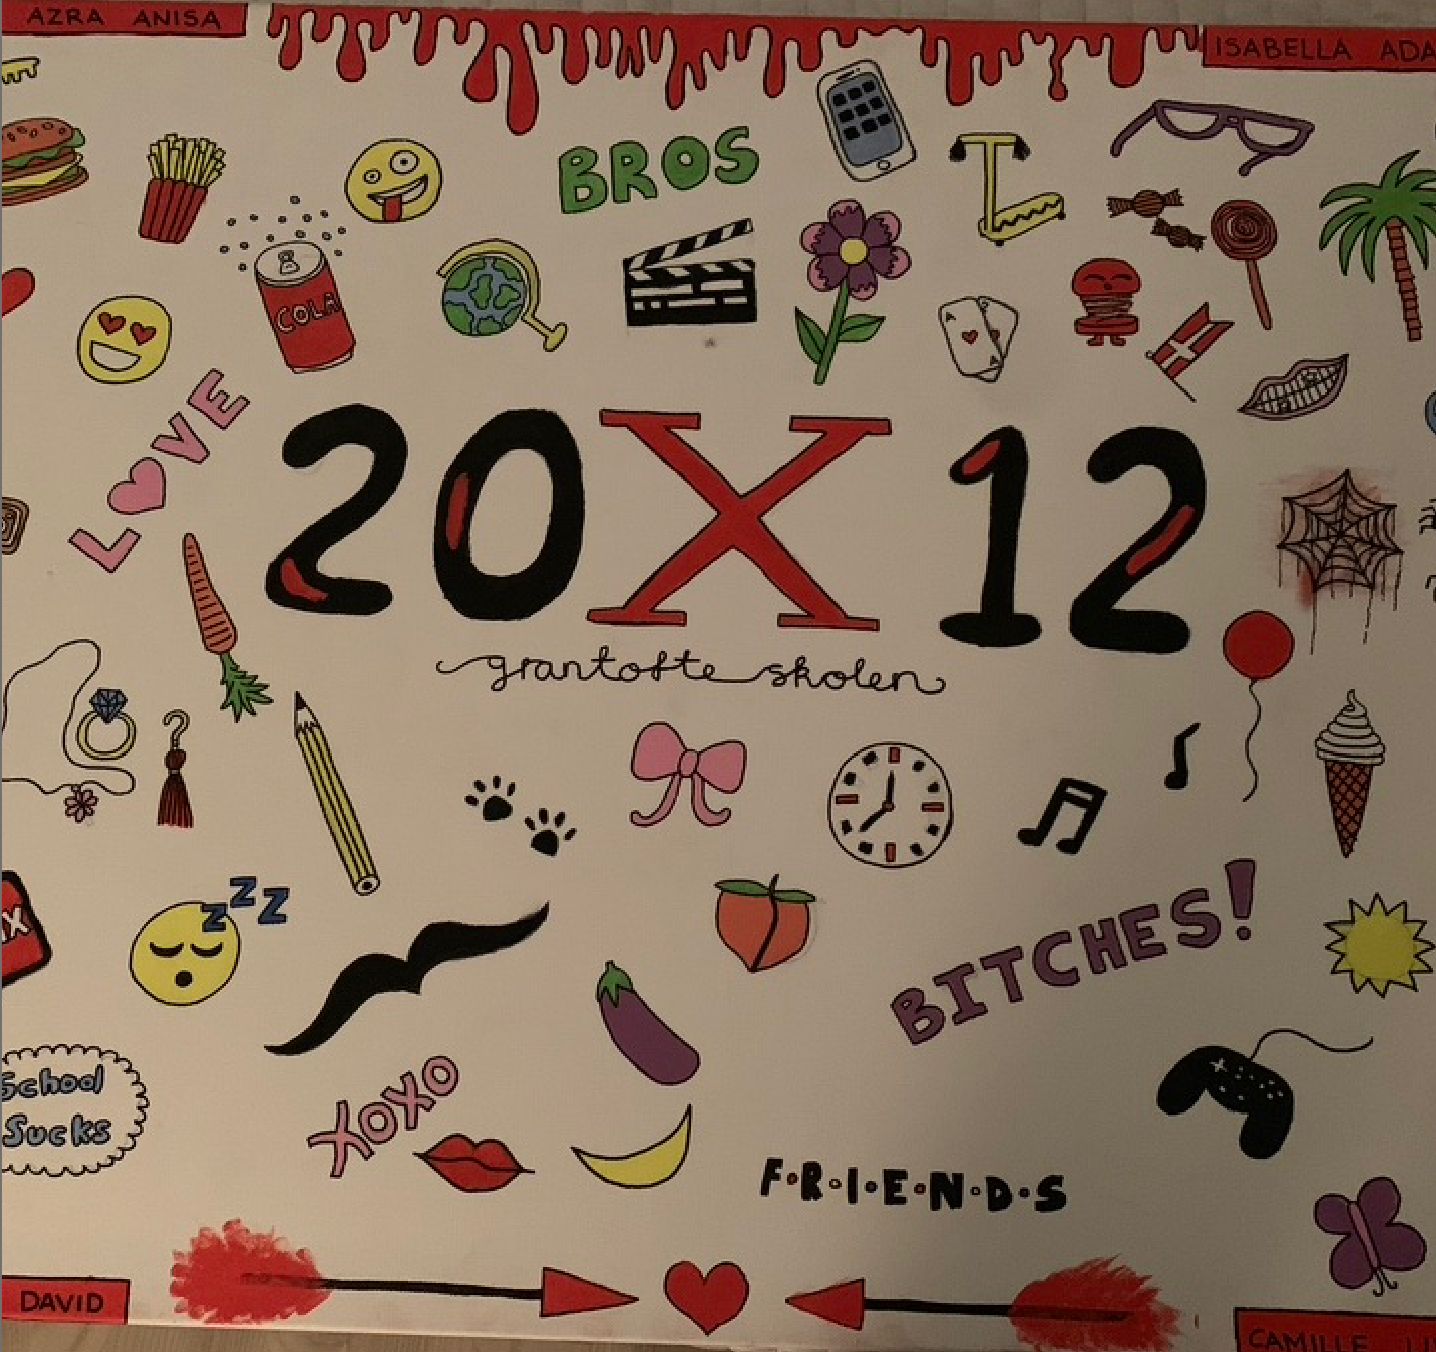 AZRA ANISA
ISABELLA
BROS
COLA
A
A
LOVE
20X12
grantofte skolen
zzz
BITCHES!
School
Sucks
XOXO
F·R·I·E·N·D·S
DAVID
CAMILLE